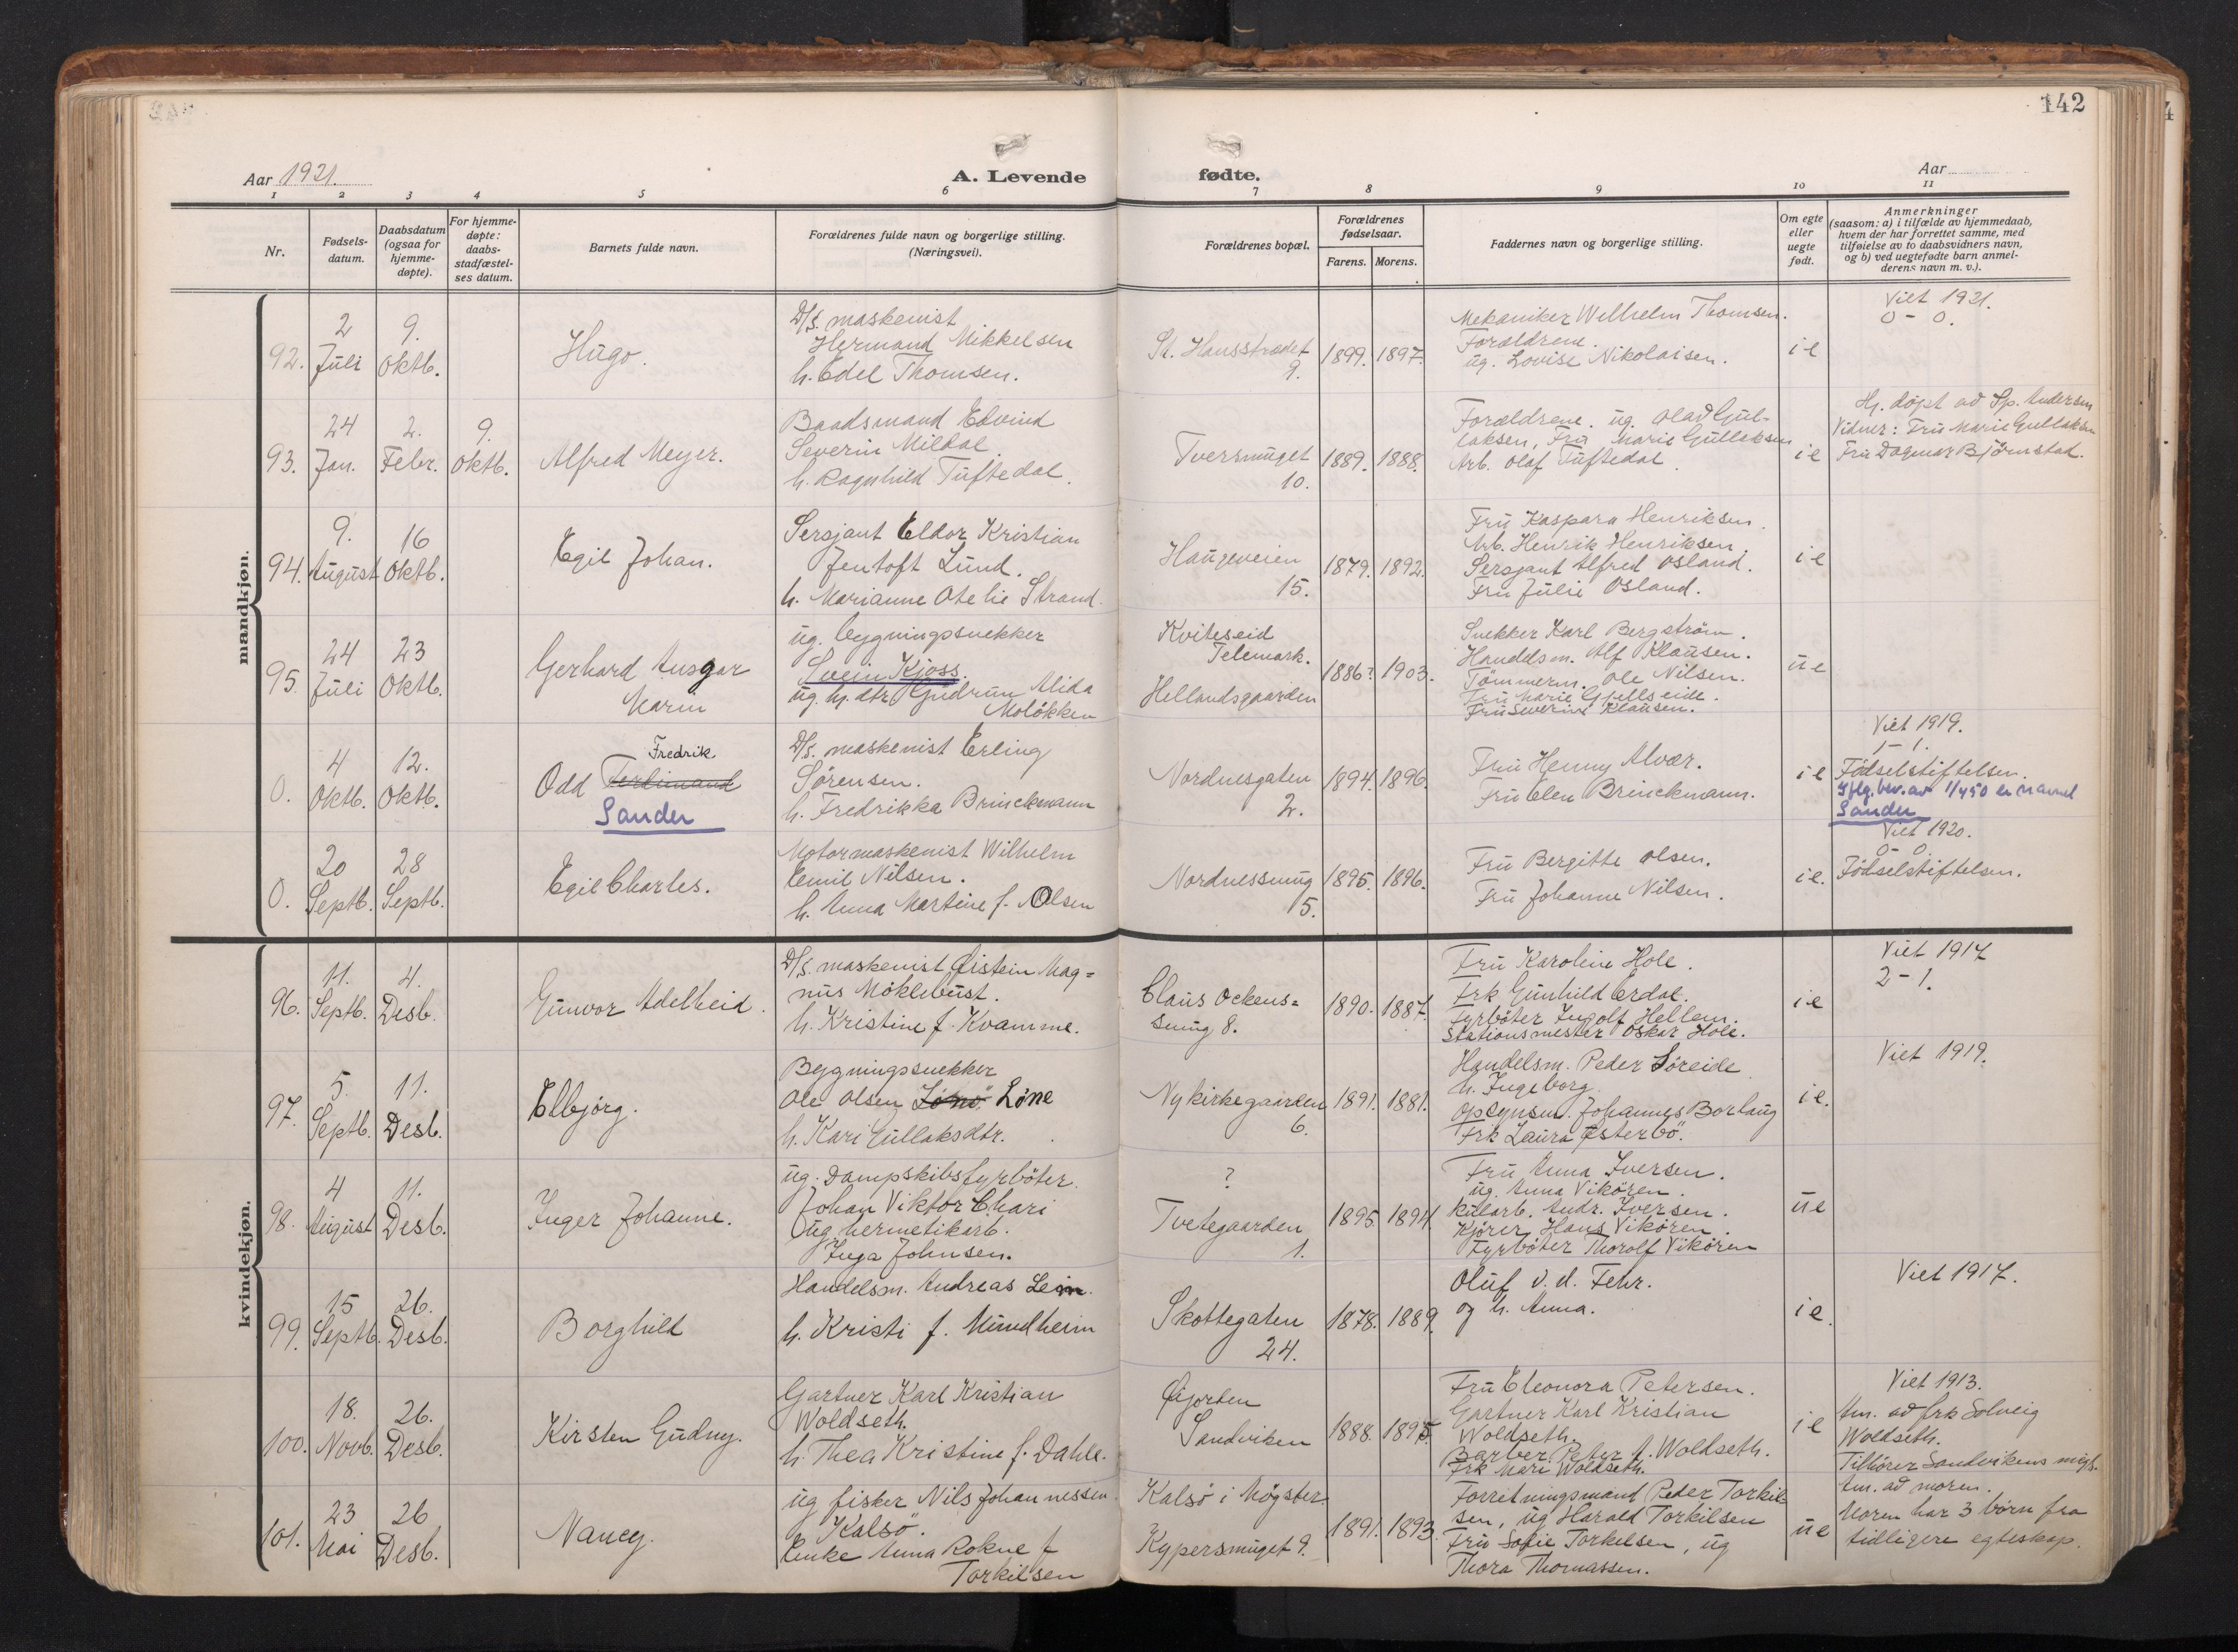 142
Aar 1921.
A. Levende fødte.
Aar
1 2 3 4 5 6 7 8 9 10 11
Nr.
Fødsels-
datum.
Daabsdatum
(ogsaa for
hjemme-
døpte).
For hjemme-
døpte:
daabs-
stadfæstel-
ses datum.
Barnets fulde navn.
Forældrenes fulde navn og borgerlige stilling.
(Næringsvei).
Forældrenes bopæl.
Forældrenes
fødselsaar.
Farens. Morens.
Faddernes navn og borgerlige stilling.
Om egte
eller
uegte
født.
Anmerkninger
(saasom: a) i tilfælde av hjemmedaab,
hvem der har forrettet samme, med
tilføielse av to daabsvidners navn,
og b) ved uegtefødte barn anmel-
derens navn m. v.).
mandkjøn.
92.
2
Juli
9.
Oktb.
Hugo.
D/s. maskenist
Hermand Mikkelsen
h. Edel Thomsen.
St. Hansstredet
9.
1899. 1897.
Mekaniker Wilhelm Thomsen.
Forældrene.
ug. Lovise Nikolaisen.
i e
Viet 1921.
0 - 0.
93.
24
Jan.
2.
Febr.
9.
Oktb.
Alfred Meyer.
Baadsmand Edvind
Severin Mildal
h. Ragnhild Tuftedal.
Tversmuget
10.
1889. 1888.
Forældrene. ug. Olav Gul-
laksen, Fru Marie Gullaksen
Arb. Olaf Tuftedal.
i e
Hj. døpt ad Sp. Andersen
Vidner: Fru Marie Gullaksen
Fru Dagmar Bjørnstad.
94.
9.
August
16
Oktb.
Egil Johan.
Sersjant Eldor Kristian
Jentoft Lund.
h. Marianne Otelie Strand.
Haugeveien
15.
1879. 1892.
Fru Kaspara Henriksen.
Arb. Henrik Henriksen.
Sersjant Alfred Osland.
Fru Julie Osland.
i e
95.
24
Juli
23
Oktb.
Gerhard Ansgar
Marin
ug. bygningssnekker
Svein Kjoss.
ug. hj. dtr Gudrun Alida
Moløkken
Kviteseid
Telemark.
Hellandsgaarden
1886? 1903.
Snekker Karl Bergström.
Handelsm. Alf Klausen.
Tømmerm. Ole Nilsen.
Fru Marie Gjellseide.
Fru Severine Klausen.
u e
0.
4
Oktb.
12.
Oktb.
Fredrik
Odd Ferdinand
Sander
D/s. maskenist Erling
Sørensen.
h. Fredrikka Brinckmann
Nordnesgaten
2.
1894. 1896.
Fru Henny Alvær.
Fru Elen Brinckmann.
i e
Viet 1919.
1 - 1.
Fødselstiftelsen.
Iflg. bev. av 1/450 er navnet
Sander
0.
20
Septb.
28
Septb.
Egil Charles.
Motormaskenist Wilhelm
Emil Nilsen.
h. Anna Martine f. Olsen
Nordnessmug
15.
1895. 1896.
Fru Bergitte Olsen.
Fru Johanne Nilsen.
i e.
Viet 1920.
0 - 0.
Fødselstiftelsen.
kvindekjøn.
96.
11.
Septb.
4.
Desb.
Gunvor Adelheid.
D/s. maskenist Øistein Mag=
nus Møklebust.
h. Kristine f. Kvamme.
Claus Ockens=
smug 8.
1890. 1887.
Fru Karoline Hole.
Frk Gunhild Erdal.
Fyrbøter Ingolf Hellem.
Stationsmester Oskar Hole.
i e
Viet 1917
2 - 1.
97.
5.
Septb.
11.
Desb.
Elbjørg.
Bygningssnekker
Ole Olsen Lønø Løne
h. Kari Gullaksdtr.
Nykirkegaarden
6.
1891. 1881.
Handelsm. Peder Søreide
h. Ingeborg.
Opsynsm. Johannes Borlaug
Frk Laura Østerbø.
i e.
Viet 1919.
98.
4
August
11.
Desb.
Inger Johanne.
ug. Dampskibsfyrbøter.
Johan Viktor Chari
ug. hermetikarb.
Inga Johnsen.
?
Tvetegaarden
1.
1895 1894.
Fru Anna Iversen.
ug. Anna Vikøren.
Kularb. Andr. Iversen.
Kjører Hans Vikøren.
Fyrbøter Thorolf Vikøren
u e
99.
15
Septb.
26.
Desb.
Borghild
Handelsm. Andreas Lein.
h. Kristi f. Mundheim
Skottegaten
24.
1878. 1889.
Oluf v. d. Fehr.
og h. Anna.
i e.
Viet 1917.
100.
18.
Novb.
26.
Desb.
Kirsten Gudny.
Gartner Karl Kristian
Woldseth.
h. Thea Kristine f. Dahle.
Øigorten
Sandviken
1888. 1895.
Fru Eleonora Petersen.
Gartner Karl Kristian
Woldseth.
Barber Peter A. Woldseth.
Frk Mari Woldseth.
i e
Viet 1913.
Am. ad frk Solveig
Woldseth.
Tilhører Sandvikens migh.
101.
23
Mai
26
Desb.
Nancy.
ug fisker Nils Johannessen
Kalsø.
Enke Anna Rokne f
Torkilsen
Kalsø i Møgster
Kypersmuget 9.
1891. 1893.
Forretningsmand Peder Torkil=
sen, ug Harald Torkilsen
Fru Sofie Torkelsen, ug
Thora Thomassen.
u e
Am. ad moren.
Moren har 3 børn fra
tidligere egteskap.